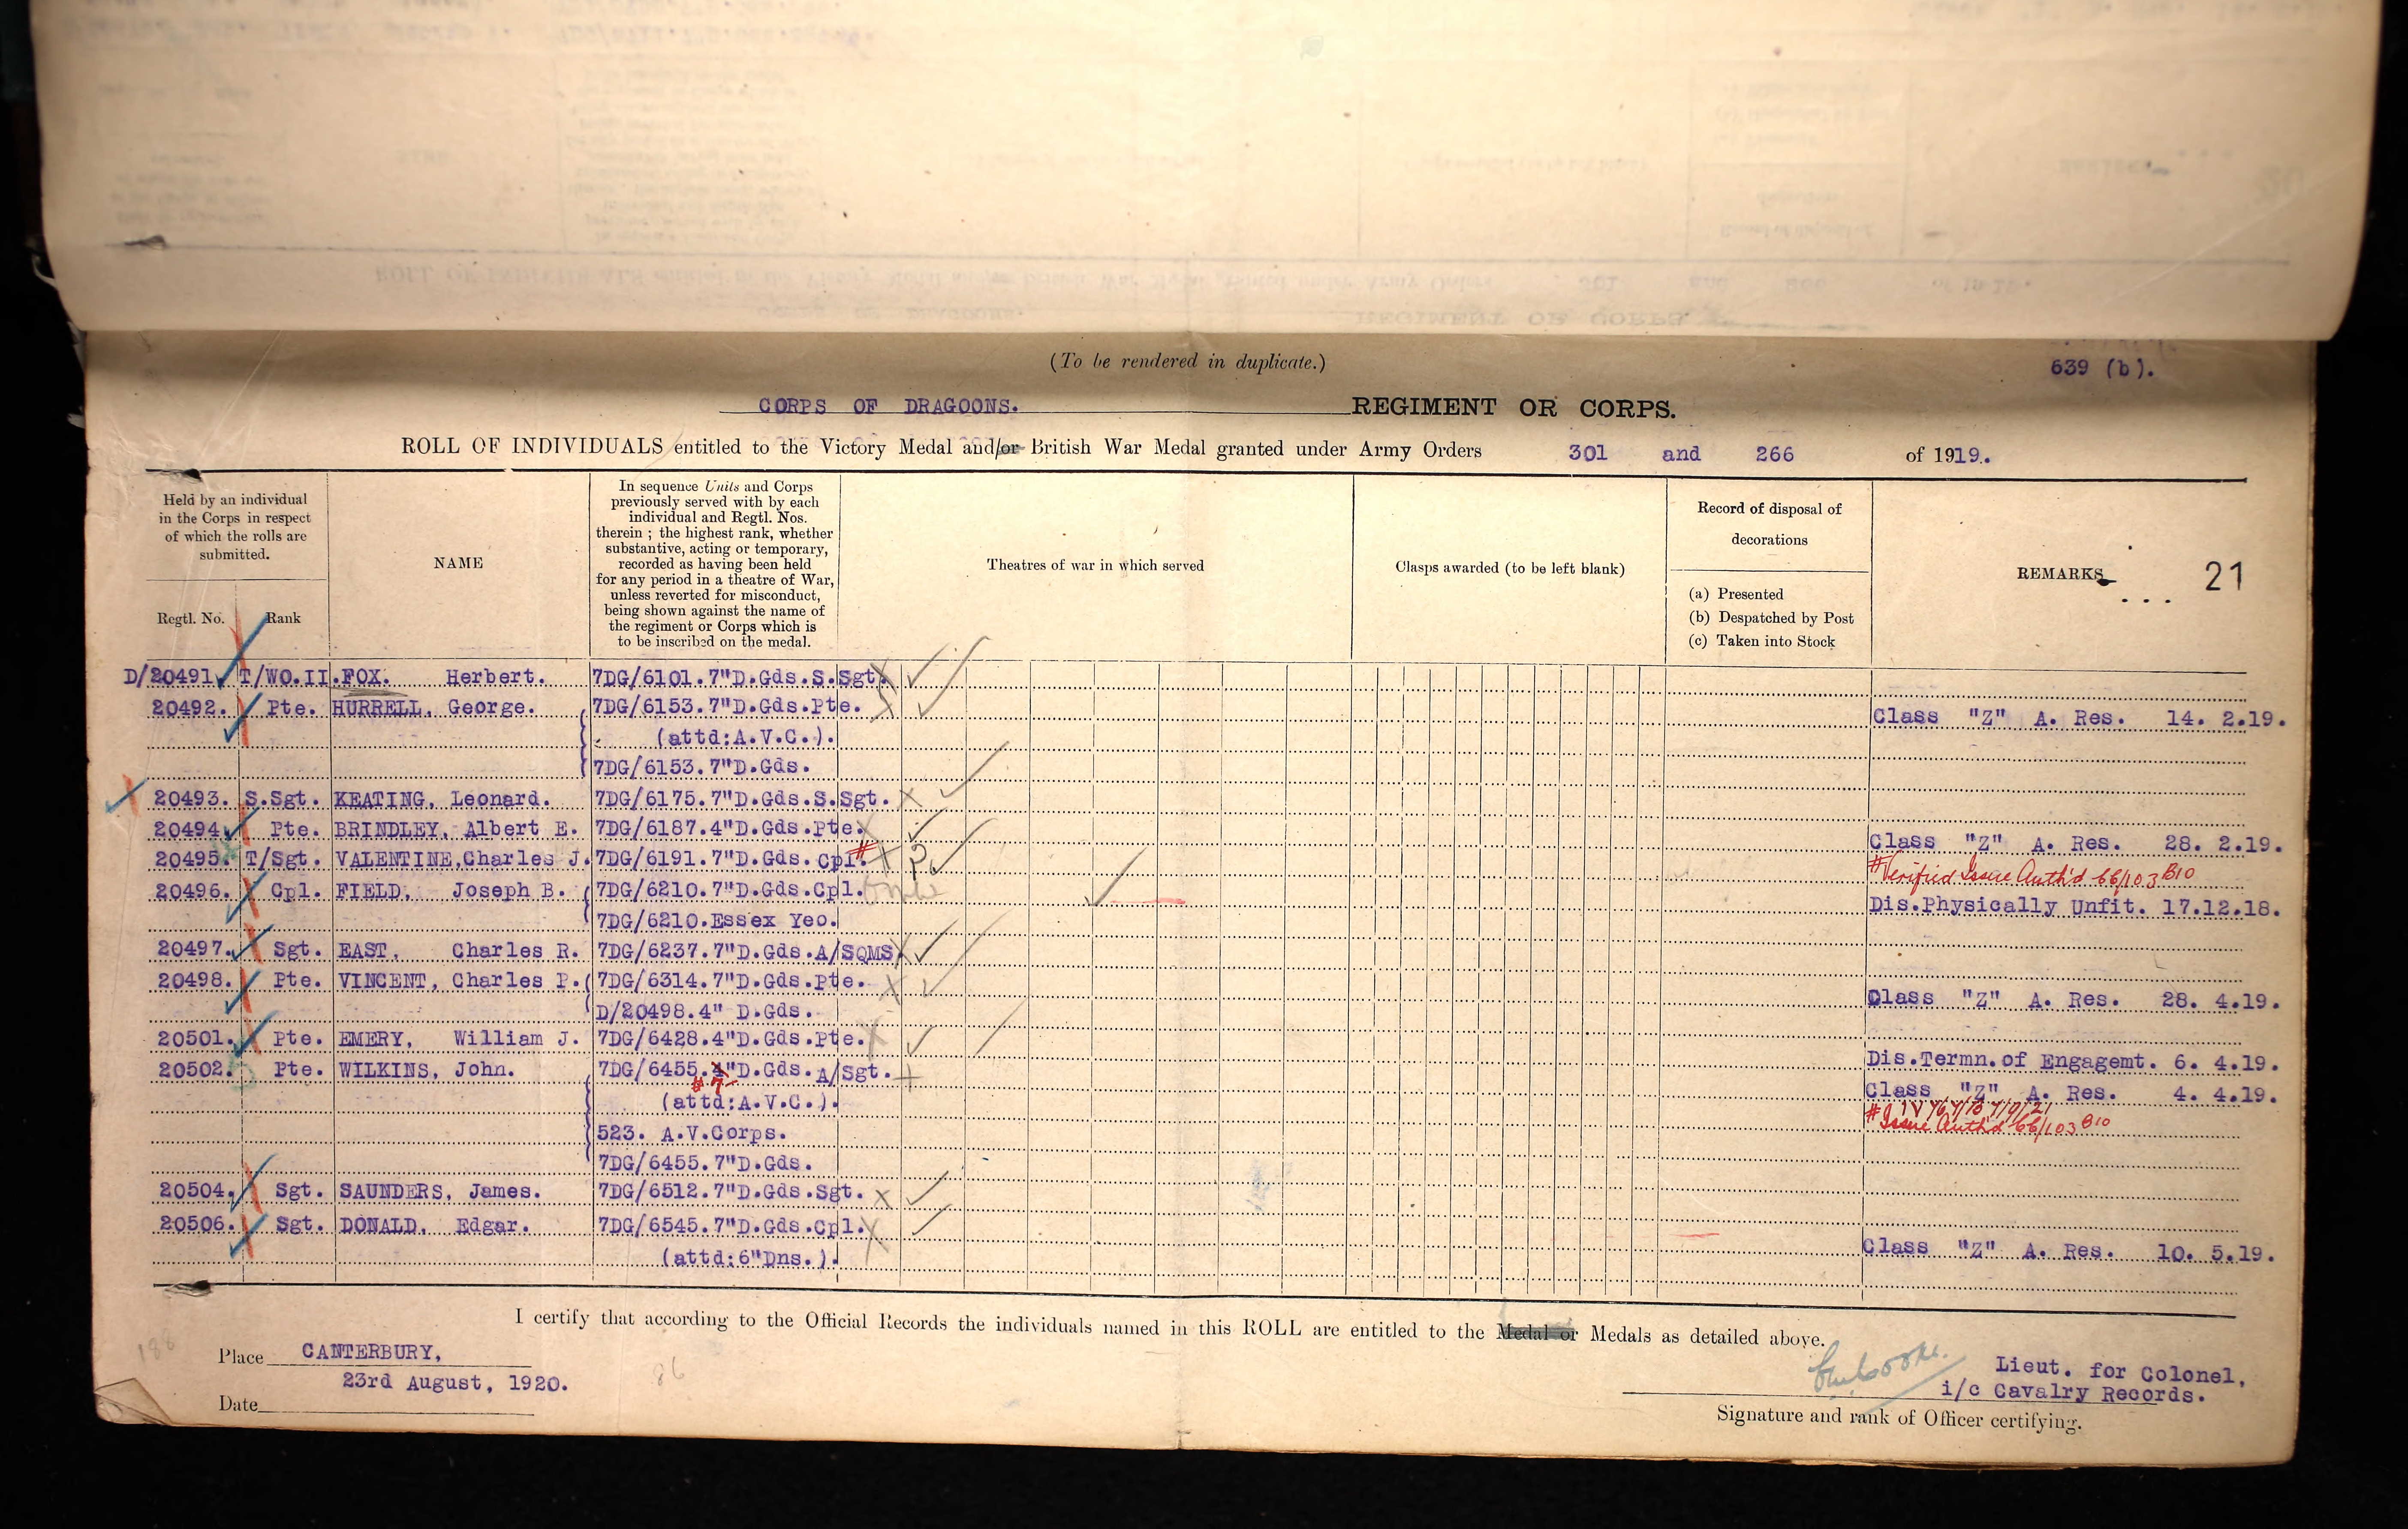 (To be rendered in duplicate.)
639 (b).
CORPS OF DRAGOONS. REGIMENT OR CORPS.
ROLL OF INDIVIDUALS entitled to the Victory Medal and/or British War Medal granted under Army Orders 301 and 266 of 1919.
Held by an individual in the Corps in respect of which the rolls are submitted.
Regtl. No. Rank
NAME
In sequence Units and Corps
previously served with by each
individual and Regtl. Nos.
therein ; the highest rank, whether
substantive, acting or temporary,
recorded as having been held
for any period in a theatre of War,
unless reverted for misconduct,
being shown against the name of
the regiment or Corps which is
to be inscribed on the medal.
Theatres of war in which served
Clasps awarded (to be left blank)
Record of disposal of
decorations
(a) Presented
(b) Despatched by Post
(c) Taken into Stock
REMARKS
21
D/20491 T/WO.II. FOX. Herbert. 7DG/6101.7"D.Gds.S.Sgt.
20492. Pte. HURRELL, George. 7DG/6153.7"D.Gds.Pte.
(attd:A.V.C.). Class "Z" A. Res. 14. 2.19.
7DG/6153.7"D.Gds.
20493. S.Sgt. KEATING, Leonard. 7DG/6175.7"D.Gds.S.Sgt.
20494. Pte. BRINDLEY, Albert E. 7DG/6187.4"D.Gds.Pte. Class "Z" A. Res. 28. 2.19.
20495. T/Sgt. VALENTINE,Charles J. 7DG/6191.7"D.Gds.Cpl.# # Verified Issue Auth'd 66/103 B10
20496. Cpl. FIELD, Joseph B. 7DG/6210.7"D.Gds.Cpl. Dis.Physically Unfit. 17.12.18.
7DG/6210.Essex Yeo.
20497. Sgt. EAST, Charles R. 7DG/6237.7"D.Gds.A/SQMS
20498. Pte. VINCENT, Charles P. 7DG/6314.7"D.Gds.Pte. Class "Z" A. Res. 28. 4.19.
D/20498.4" D.Gds.
20501. Pte. EMERY, William J. 7DG/6428.4"D.Gds.Pte. Dis.Termn.of Engagemt. 6. 4.19.
20502. Pte. WILKINS, John. 7DG/6455.4"D.Gds.A/Sgt. Class "Z" A. Res. 4. 4.19.
# 7
(attd:A.V.C.). # Issue Auth'd 66/103 B10
523. A.V.Corps.
7DG/6455.7"D.Gds.
20504. Sgt. SAUNDERS, James. 7DG/6512.7"D.Gds.Sgt.
20506. Sgt. DONALD, Edgar. 7DG/6545.7"D.Gds.Cpl.
(attd:6"Dns.). Class "Z" A. Res. 10. 5.19.
I certify that according to the Official Records the individuals named in this ROLL are entitled to the Medal or Medals as detailed above.
Place CANTERBURY,
23rd August, 1920.
Date
86
Lieut. for Colonel,
i/c Cavalry Records.
Signature and rank of Officer certifying.